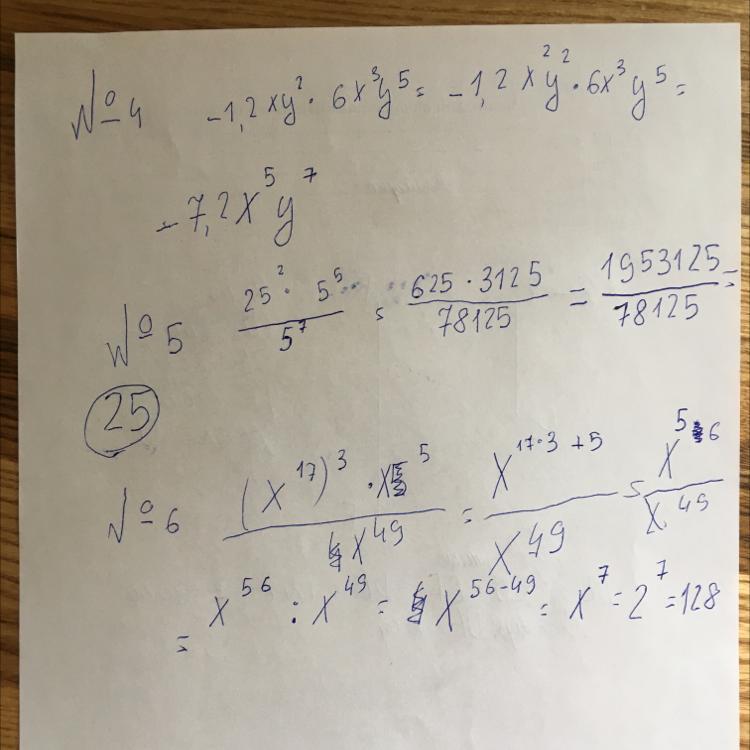 №4 -1,2xy²·6x³y⁵= -1,2x²y²·6x³y⁵=
-7,2x⁵y⁷
№5 25²·5⁵/5⁷ = 625·3125/78125 = 1953125/78125=
25
№6 (x¹⁷)³·x⁵/x⁴⁹ = x¹⁷·³⁺⁵/x⁴⁹ = x⁵⁶/x⁴⁹
= x⁵⁶:x⁴⁹= x⁵⁶⁻⁴⁹= x⁷=2⁷=128